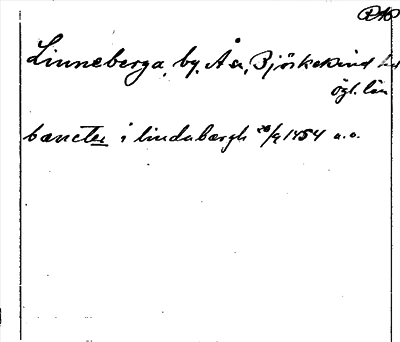 Linneberga, by, Å sn, Björkekind hd
ögl. län
bæncter i lindabærgh 28/9 1454 a.o.